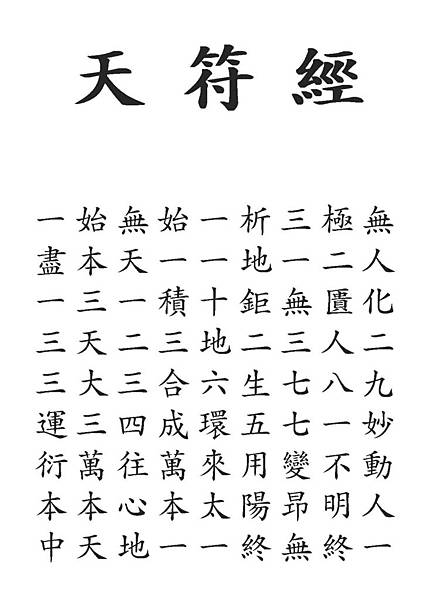 天符經
一始無始一析三極無
盡本天一一地一二人
一三一積十鉅無匱化
三天二三地二三人二
三大三合六生七八九
運三四成環五七一妙
衍萬往萬來用變不動
本本心本太陽昻明人
中天地一一終無終一